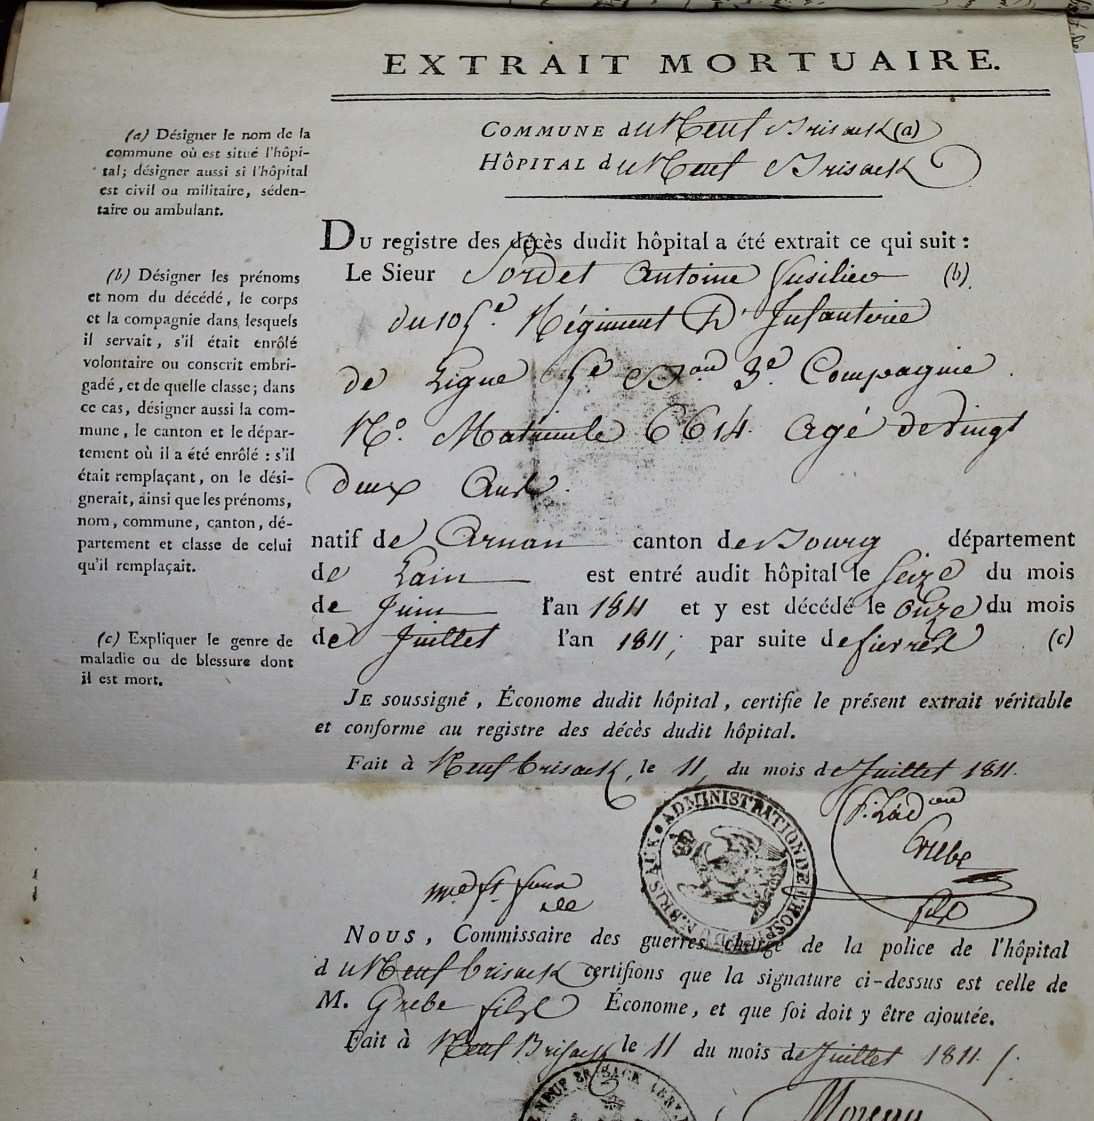 EXTRAIT MORTUAIRE.
COMMUNE du Neuf Brisack (a)
HÔPITAL du Neuf Brisack
(a) Désigner le nom de la
commune où est situé l'hôpi-
tal; désigner aussi si l'hôpital
est civil ou militaire, séden-
taire ou ambulant.
DU registre des décès dudit hôpital a été extrait ce qui suit :
Le Sieur Sordet Antoine fusilier (b)
du 105e. Régiment D'Infanterie
de Ligne 5e Bon 3e Compagnie.
No. Matricule 6614. Agé de vingt
deux Ans.
(b) Désigner les prénoms
et nom du décédé, le corps
et la compagnie dans lesquels
il servait, s'il était enrôlé
volontaire ou conscrit embri-
gadé, et de quelle classe; dans
ce cas, désigner aussi la com-
mune, le canton et le dépar-
tement où il a été enrôlé : s'il
était remplaçant, on le dési-
gnerait, ainsi que les prénoms,
nom, commune, canton, dé-
partement et classe de celui
qu'il remplaçait.
natif de Arnan canton de Bourg département
de Lain est entré audit hôpital le seize du mois
de Juin l'an 1811 et y est décédé le onze du mois
de Juillet l'an 1811; par suite de fievres (c)
(c) Expliquer le genre de
maladie ou de blessure dont
il est mort.
JE soussigné, Économe dudit hôpital, certifie le présent extrait véritable
et conforme au registre des décès dudit hôpital.
Fait à Neufbrisack, le 11, du mois de Juillet 1811.
Grebe
fils
ADMINISTRATION DE L'HOSPICE DU N. BRISACK
NOUS, Commissaire des guerres chargé de la police de l'hôpital
du Neufbrisack certifions que la signature ci-dessus est celle de
M. Grebe fils Économe, et que foi doit y être ajoutée.
Fait à Neuf Brisack le 11 du mois de Juillet 1811.
NEUF BRISACK
Moreau